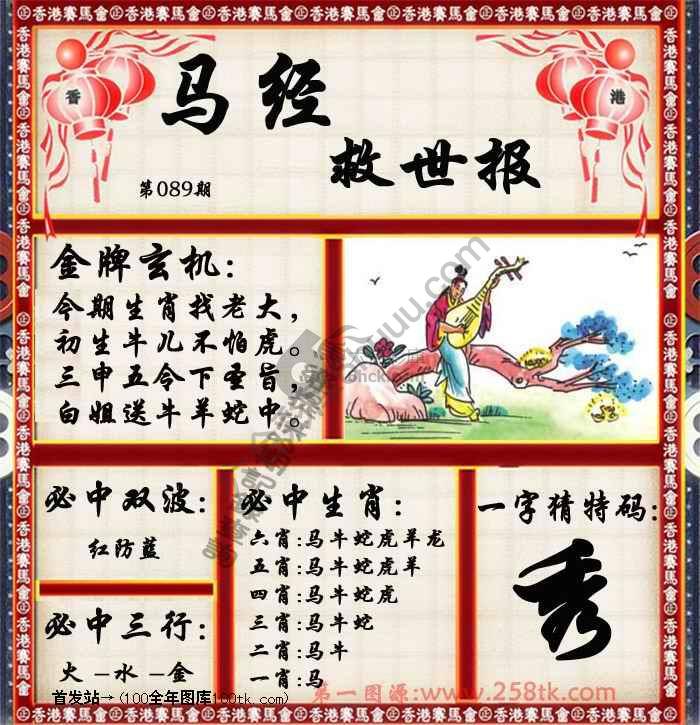 香港賽馬會
香
港
马经
救世报
第089期
金牌玄机:
今期生肖找老大,
初生牛儿不怕虎。
三申五令下圣旨,
白姐送牛羊蛇中。
必中双波:
红防蓝
必中三行:
火-水-金
必中生肖:
六肖:马牛蛇虎羊龙
五肖:马牛蛇虎羊
四肖:马牛蛇虎
三肖:马牛蛇
二肖:马牛
一肖:马
一字猜特码:
秀
首发站→(100全年图库100tk.com)
第一图源:www.258tk.com